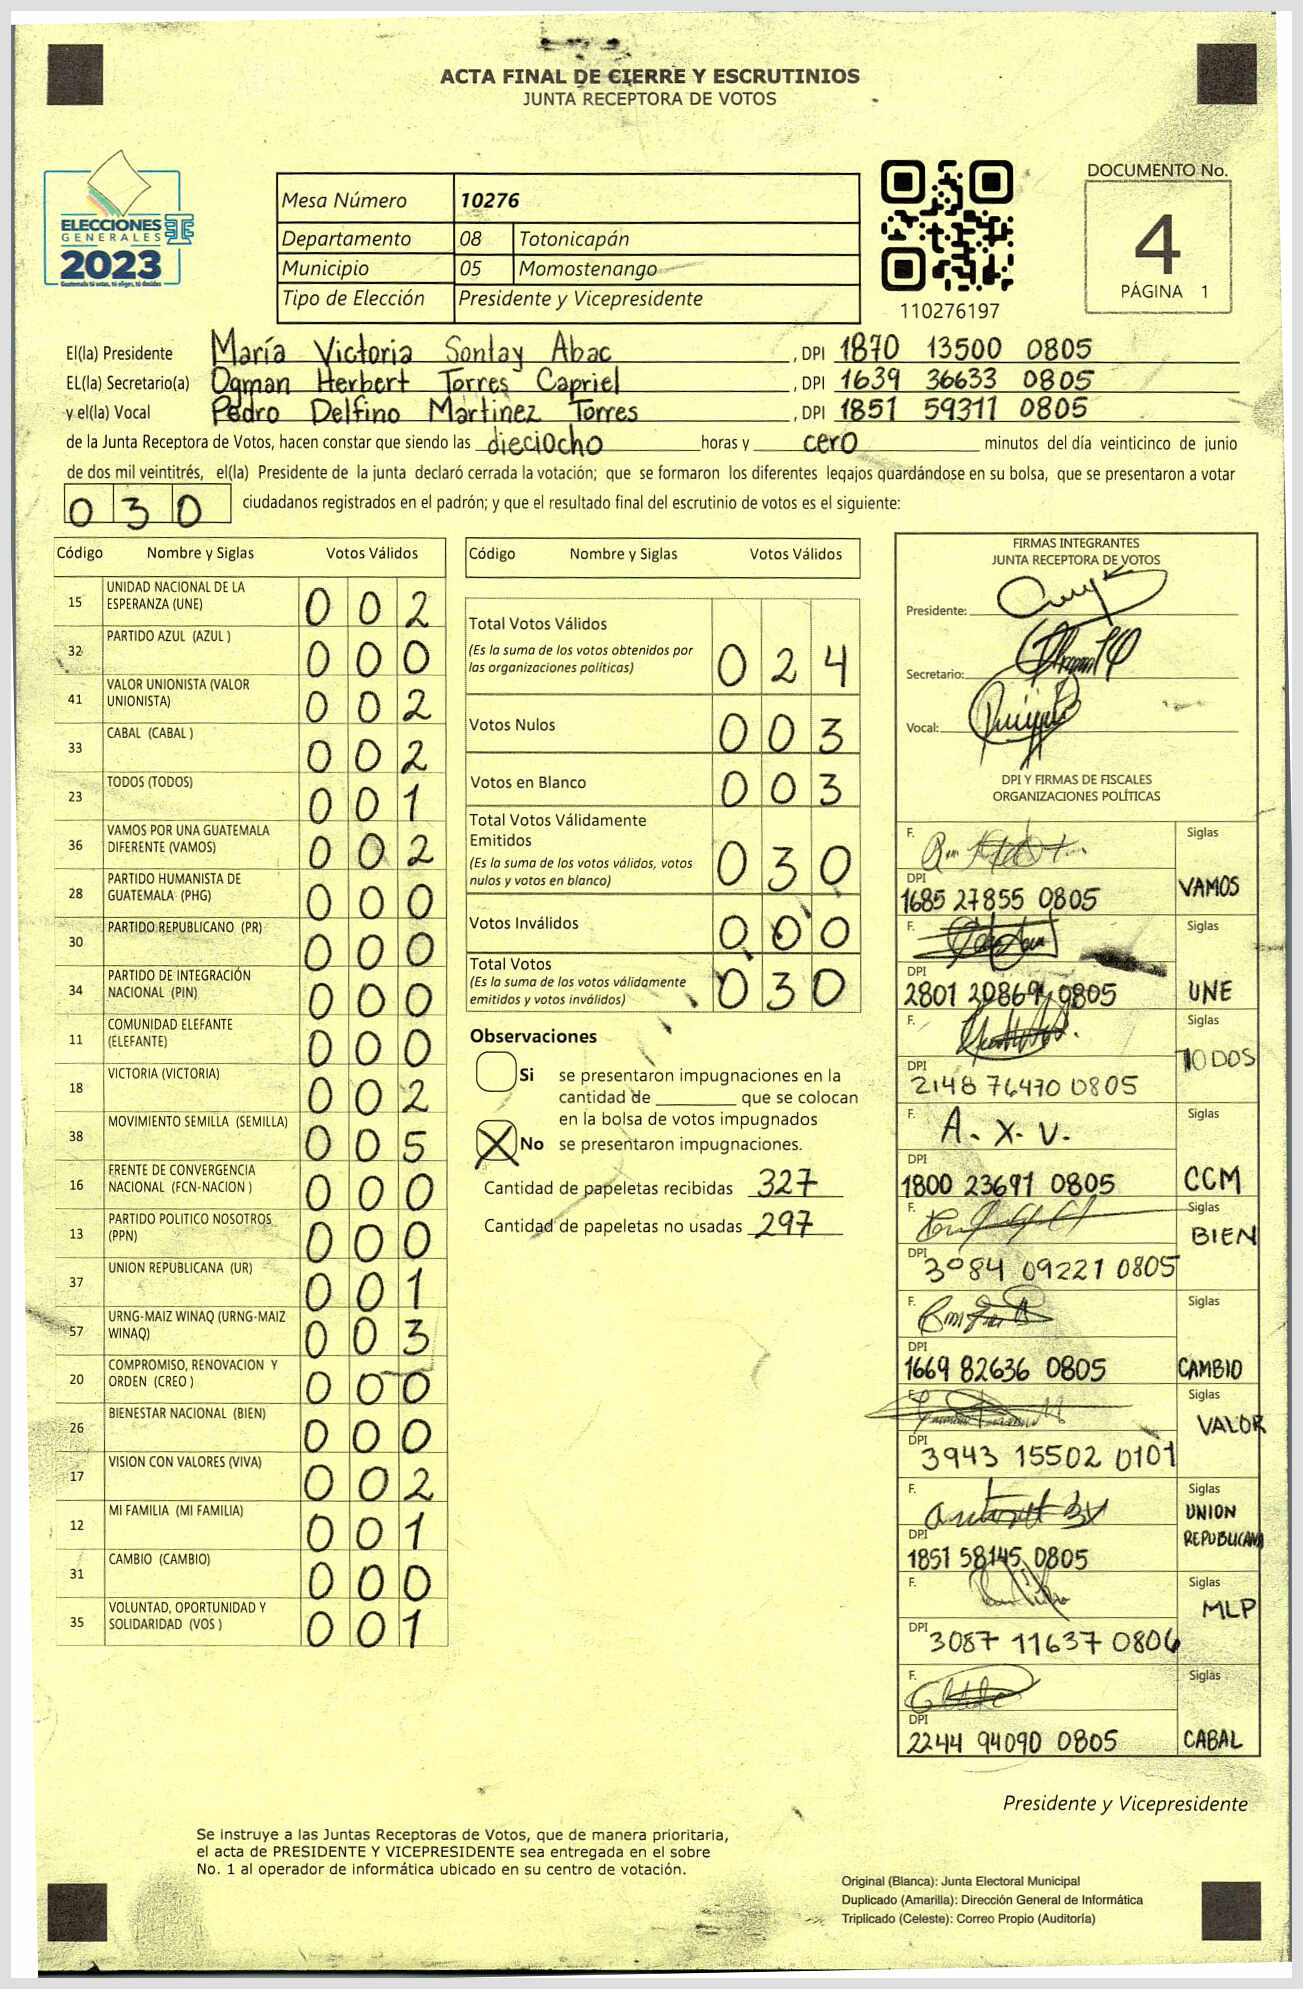 ACTA FINAL DE CIERRE Y ESCRUTINIOS
JUNTA RECEPTORA DE VOTOS
ELECCIONES
GENERALES
2023
Guatemala tú votas, tú eliges, tú decides
Mesa Número 10276
Departamento 08 Totonicapán
Municipio 05 Momostenango
Tipo de Elección Presidente y Vicepresidente
110276197
DOCUMENTO No.
4
PÁGINA 1
El(la) Presidente María Victoria Sontay Abac , DPI 1870 13500 0805
EL(la) Secretario(a) Ogman Herbert Torres Capriel , DPI 1639 36633 0805
y el(la) Vocal Pedro Delfino Martinez Torres , DPI 1851 59311 0805
de la Junta Receptora de Votos, hacen constar que siendo las dieciocho horas y cero minutos del día veinticinco de junio
de dos mil veintitrés, el(la) Presidente de la junta declaró cerrada la votación; que se formaron los diferentes legajos guardándose en su bolsa, que se presentaron a votar
030 ciudadanos registrados en el padrón; y que el resultado final del escrutinio de votos es el siguiente:
Código Nombre y Siglas Votos Válidos
15 UNIDAD NACIONAL DE LA ESPERANZA (UNE) 002
32 PARTIDO AZUL (AZUL ) 000
41 VALOR UNIONISTA (VALOR UNIONISTA) 002
33 CABAL (CABAL ) 002
23 TODOS (TODOS) 001
36 VAMOS POR UNA GUATEMALA DIFERENTE (VAMOS) 002
28 PARTIDO HUMANISTA DE GUATEMALA (PHG) 000
30 PARTIDO REPUBLICANO (PR) 000
34 PARTIDO DE INTEGRACIÓN NACIONAL (PIN) 000
11 COMUNIDAD ELEFANTE (ELEFANTE) 000
18 VICTORIA (VICTORIA) 002
38 MOVIMIENTO SEMILLA (SEMILLA) 005
16 FRENTE DE CONVERGENCIA NACIONAL (FCN-NACION ) 000
13 PARTIDO POLITICO NOSOTROS (PPN) 000
37 UNION REPUBLICANA (UR) 001
57 URNG-MAIZ WINAQ (URNG-MAIZ WINAQ) 003
20 COMPROMISO, RENOVACION Y ORDEN (CREO ) 000
26 BIENESTAR NACIONAL (BIEN) 000
17 VISION CON VALORES (VIVA) 002
12 MI FAMILIA (MI FAMILIA) 001
31 CAMBIO (CAMBIO) 000
35 VOLUNTAD, OPORTUNIDAD Y SOLIDARIDAD (VOS ) 001
Código Nombre y Siglas Votos Válidos
Total Votos Válidos
(Es la suma de los votos obtenidos por
las organizaciones políticas) 024
Votos Nulos 003
Votos en Blanco 003
Total Votos Válidamente
Emitidos
(Es la suma de los votos válidos, votos
nulos y votos en blanco) 030
Votos Inválidos 000
Total Votos
(Es la suma de los votos válidamente
emitidos y votos inválidos) 030
Observaciones
Si se presentaron impugnaciones en la
cantidad de ________ que se colocan
en la bolsa de votos impugnados
X No se presentaron impugnaciones.
Cantidad de papeletas recibidas 327
Cantidad de papeletas no usadas 297
FIRMAS INTEGRANTES
JUNTA RECEPTORA DE VOTOS
Presidente:
Secretario:
Vocal:
DPI Y FIRMAS DE FISCALES
ORGANIZACIONES POLÍTICAS
F. Siglas
DPI
1685 27855 0805 VAMOS
F. Siglas
DPI
2801 20869 0805 UNE
F. Siglas
TODOS
DPI
2148 76470 0805
F. A. X. V. Siglas
DPI
1800 23691 0805 CCM
F. Siglas
BIEN
DPI
3084 09221 0805
F. Siglas
DPI
1669 82636 0805 CAMBIO
F. Siglas
VALOR
DPI
3943 15502 0101
F. Siglas
UNION
DPI REPUBLICANA
1851 58145 0805
F. Siglas
MLP
DPI
3087 11637 0806
F. Siglas
DPI
2244 94090 0805 CABAL
Presidente y Vicepresidente
Se instruye a las Juntas Receptoras de Votos, que de manera prioritaria,
el acta de PRESIDENTE Y VICEPRESIDENTE sea entregada en el sobre
No. 1 al operador de informática ubicado en su centro de votación.
Original (Blanca): Junta Electoral Municipal
Duplicado (Amarilla): Dirección General de Informática
Triplicado (Celeste): Correo Propio (Auditoría)